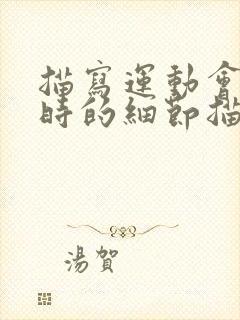 描寫運動會
時的細節描
湯賀